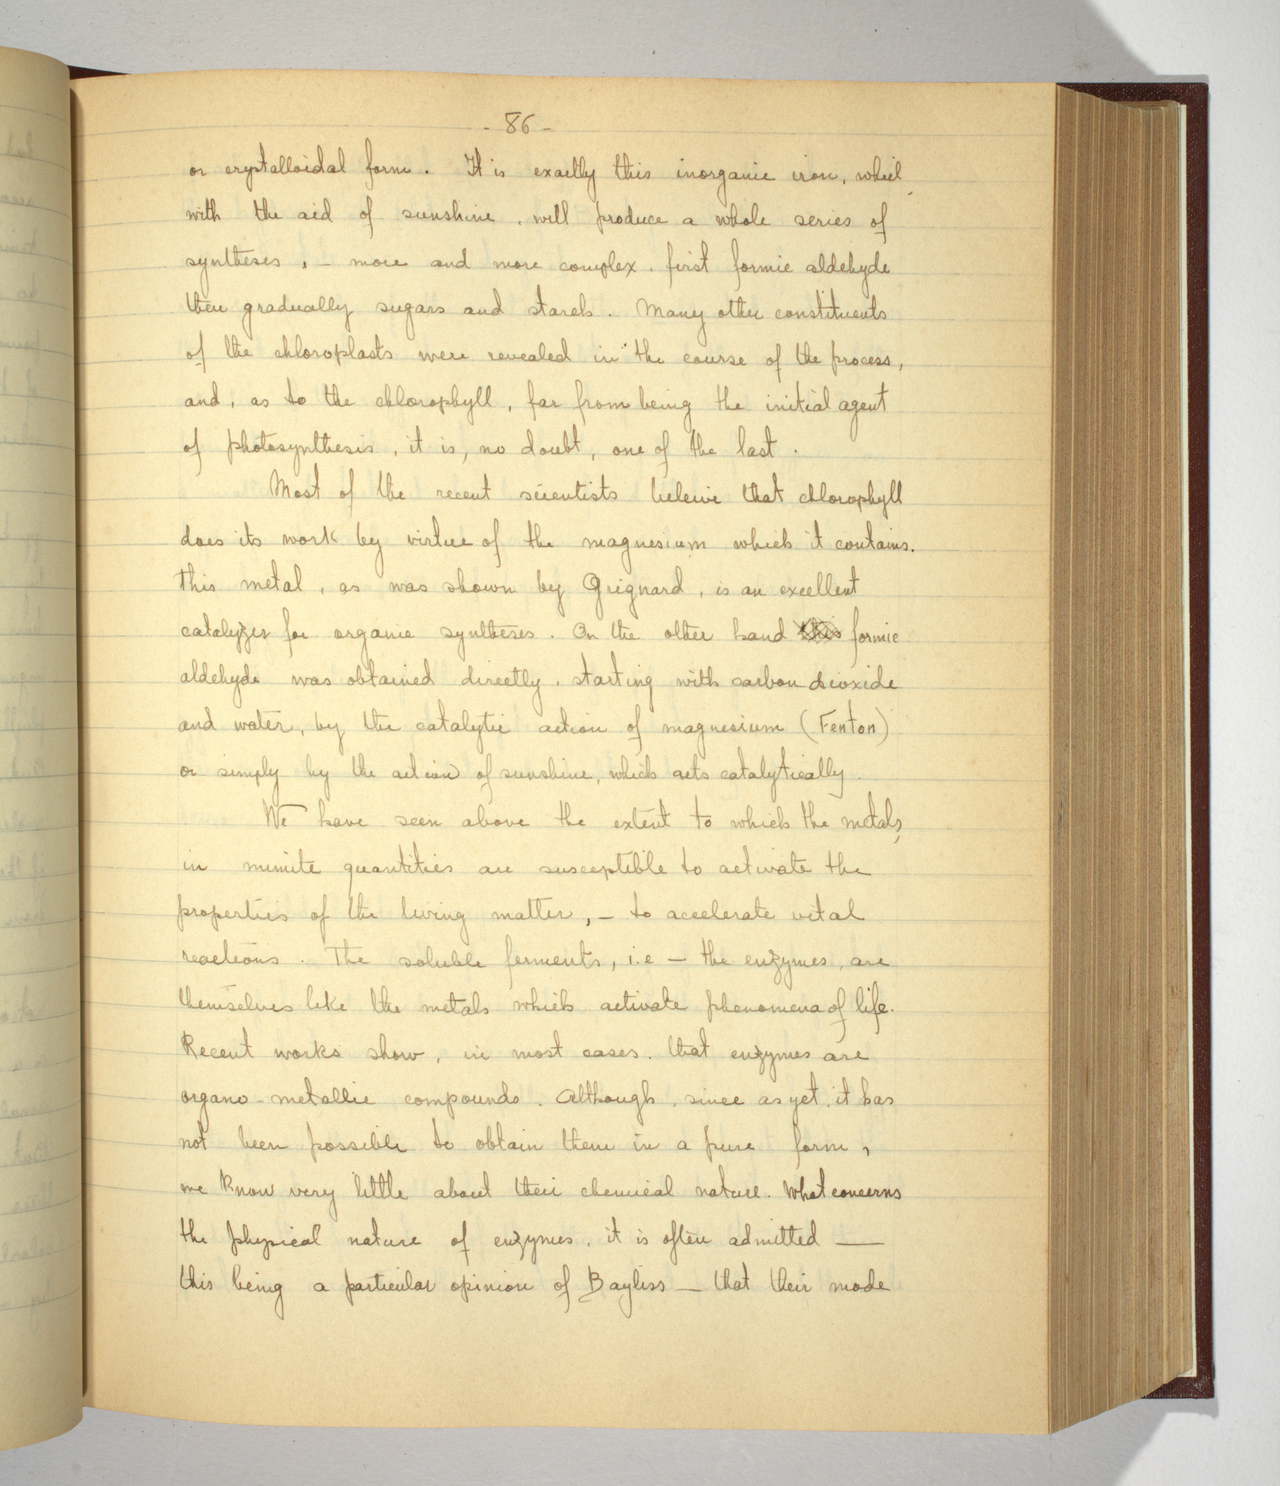 - 86 -
or crystalloidal form. It is exactly this inorganic iron, which,
with the aid of sunshine, will produce a whole series of
syntheses, - more and more complex, first formic aldehyde
then gradually sugars and starch. Many other constituents
of the chloroplasts were revealed in the course of the process,
and, as to the chlorophyll, far from being the initial agent
of photosynthesis, it is, no doubt, one of the last.
Most of the recent scientists beleive that chlorophyll
does its work by virtue of the magnesium which it contains.
This metal, as was shown by Grignard, is an excellent
catalyzer for organic syntheses. On the other hand this formic
aldehyde was obtained directly, starting with carbon dioxide
and water, by the catalytic action of magnesium (Fenton)
or simply by the action of sunshine, which acts catalytically.
We have seen above the extent to which the metals,
in minute quantities are susceptible to activate the
properties of the living matter, - to accelerate vital
reactions. The soluble ferments, i.e - the enzymes, are
themselves like the metals which activate phenomena of life.
Recent works show, in most cases, that enzymes are
organo-metallic compounds. Although, since as yet, it has
not been possible to obtain them in a pure form,
we know very little about their chemical nature. What concerns
the physical nature of enzymes, it is often admitted —
this being a particular opinion of Bayliss — that their mode